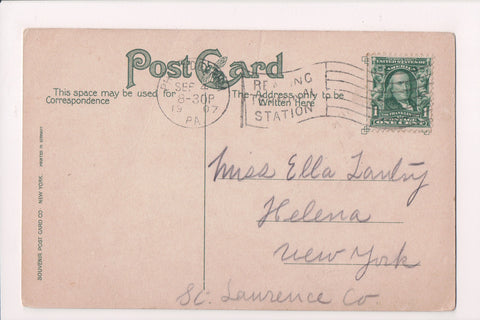 Post Card
This space may be used for
Correspondence
The Address only to be
Written Here
SEP
8-30P
1907
PA.
STATION
UNITED STATES OF AMERICA
1
ONE CENT
Miss Ella
Helena
New York
St. Lawrence Co.
SOUVENIR POST CARD CO NEW YORK. PRINTED IN GERMANY